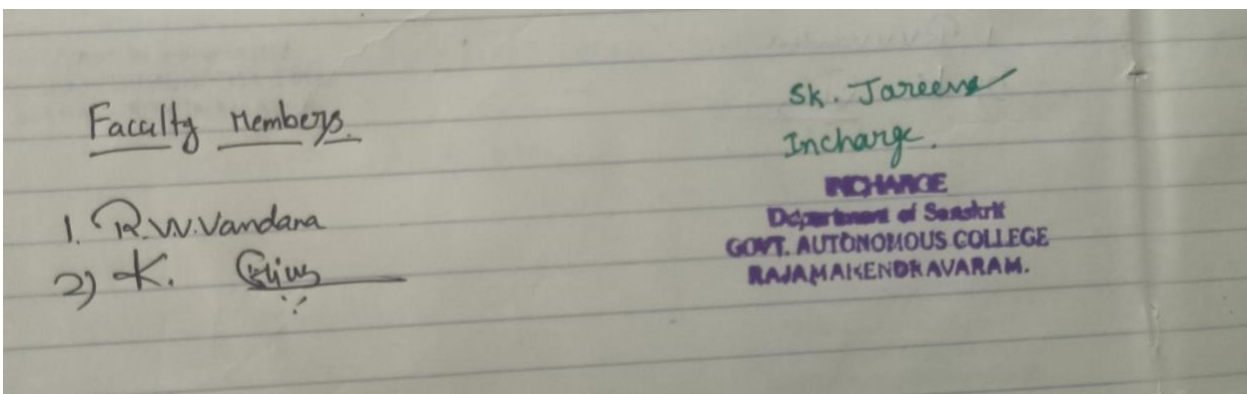 Faculty Members.
1. R.V.V.Vandana
2) K.
Sk. Jareena
Incharge.
INCHARGE
Department of Sanskrit
GOVT. AUTONOMOUS COLLEGE
RAJAMAHENDRAVARAM.